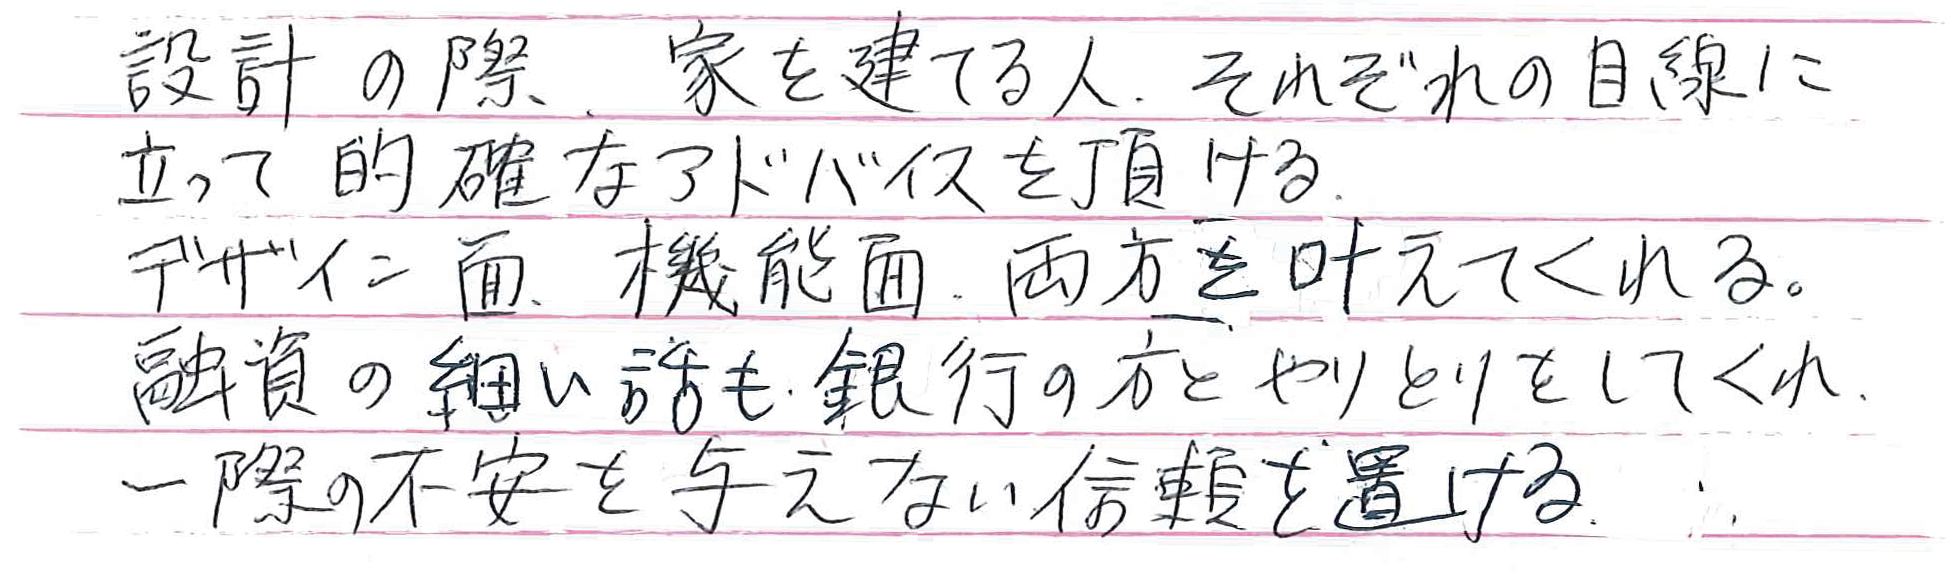 設計の際、家を建てる人、それぞれの目線に
立って的確なアドバイスを頂ける。
デザイン面、機能面、両方を叶えてくれる。
融資の細い話も、銀行の方とやりとりをしてくれ、
一際の不安を与えない信頼を置ける。